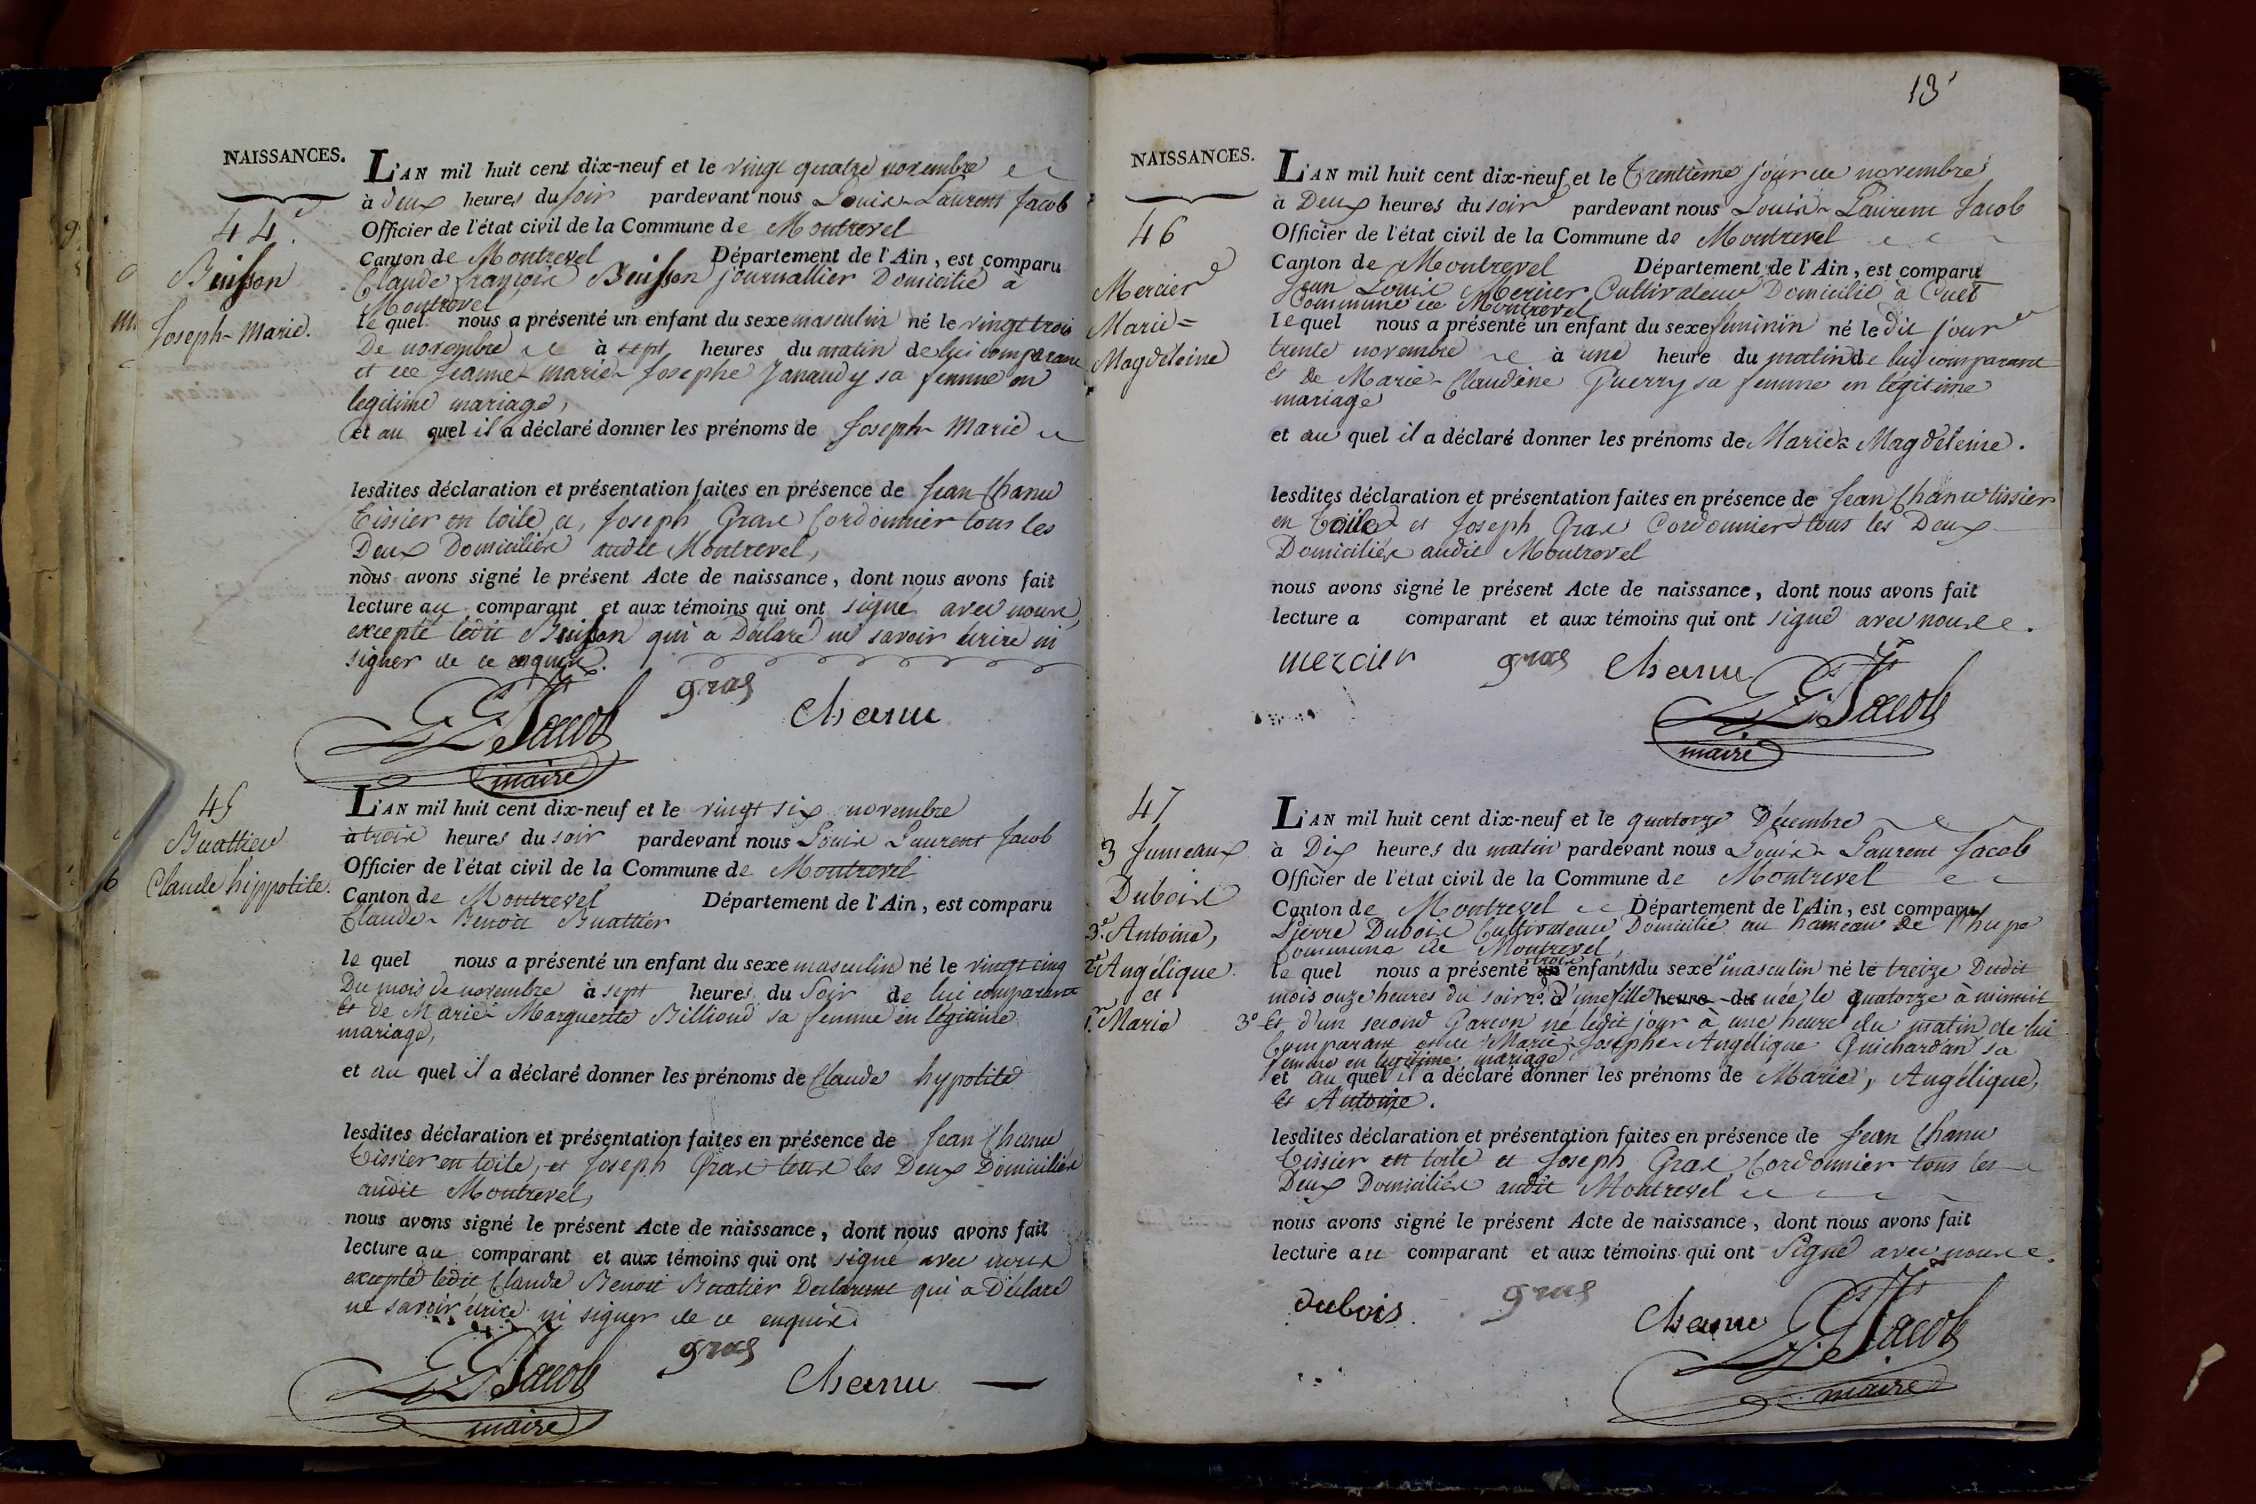 NAISSANCES.
44.
Buisson
Joseph-Marie.
L'AN mil huit cent dix-neuf et le vingt quatre novembre
à deux heures du soir pardevant nous Louis-Laurent Jacob
Officier de l'état civil de la Commune de Montrevel
Canton de Montrevel Département de l'Ain, est comparu
Claude françois Buisson journallier Domicilié à
Montrevel
le quel nous a présenté un enfant du sexe masculin né le vingt trois
De novembre à sept heures du matin de lui comparant
et de Jeanne-marie-Josephe Janaudy sa femme en
legitime mariage,
et au quel il a déclaré donner les prénoms de Joseph-Marie
lesdites déclaration et présentation faites en présence de Jean Chanu
Tissier en toile et, Joseph Gras Cordonnier tous les
Deux Domiciliés audit Montrevel,
nous avons signé le présent Acte de naissance, dont nous avons fait
lecture au comparant et aux témoins qui ont signé avec nous,
excepté ledit Buisson qui a Déclaré ne savoir écrire ni
signer de ce enquis.
gras
chanu
Jacob
maire
45
Buattier
Claude hippolite.
L'AN mil huit cent dix-neuf et le vingt six novembre
à trois heures du soir pardevant nous Louis Laurent Jacob
Officier de l'état civil de la Commune de Montrevel
Canton de Montrevel Département de l'Ain, est comparu
Claude-Benoit Buattier
le quel nous a présenté un enfant du sexe masculin né le vingt cinq
Du mois de novembre à sept heures du Soir de lui comparant
Et de Marie-Marguerite Billioud sa femme en légitime
mariage,
et au quel il a déclaré donner les prénoms de Claude hypolite
lesdites déclaration et présentation faites en présence de Jean Chanu
Tissier en toile, et Joseph Gras tous les Deux Domiciliés
audit Montrevel,
nous avons signé le présent Acte de naissance, dont nous avons fait
lecture au comparant et aux témoins qui ont signé avec nous
excepté ledit Claude Benoit Buatier Déclarant qui a Déclaré
ne savoir écrire ni signer de ce enquis
Jacob
maire
gras
chanu
13
NAISSANCES.
46
Mercier
Marie=
Magdeleine
L'AN mil huit cent dix-neuf et le Trentième jour de novembre
à Deux heures du soir pardevant nous Louis-Laurent Jacob
Officier de l'état civil de la Commune de Montrevel
Canton de Montrevel Département de l'Ain, est comparu
Jean Louis Mercier Cultivateur Domicilié à Cuet
Commune de Montrevel
le quel nous a présenté un enfant du sexe féminin né le dit jour
trente novembre à une heure du matin de lui comparant
Et De Marie-Claudine Guerry sa femme en légitime
mariage
et au quel il a déclaré donner les prénoms de Marie=Magdeleine.
lesdites déclaration et présentation faites en présence de Jean Chanu tissier
en toile et Joseph Gras Cordonnier tous les Deux
Domiciliés audit Montrevel
nous avons signé le présent Acte de naissance, dont nous avons fait
lecture a comparant et aux témoins qui ont signé avec nous.
mercier gras chanu
Jacob
maire
47
3 Jumeaux
Dubois
3.e Antoine,
2.e Angélique
et
1.er Marie
L'AN mil huit cent dix-neuf et le quatorze Décembre
à Dix heures du matin pardevant nous Louis-Laurent Jacob
Officier de l'état civil de la Commune de Montrevel
Canton de Montrevel Département de l'Ain, est comparu
Pierre Dubois Cultivateur Domicilié au hameau De l'hupe
Commune de Montrevel,
le quel nous a présenté trois enfants du sexe 1° masculin né le treize Dudit
mois onze heures du soir 2° d'une fille heure du née le quatorze à minuit
3° Et d'un second Garçon né ledit jour à une heure du matin de lui
Comparant et de Marie-Josephe-Angélique Guichardan sa
femme en légitime mariage
et au quel il a déclaré donner les prénoms de Marie, Angélique,
Et Antoine.
lesdites déclaration et présentation faites en présence de Jean Chanu
Tissier en toile et Joseph Gras Cordonnier tous les
Deux Domiciliés audit Montrevel
nous avons signé le présent Acte de naissance, dont nous avons fait
lecture au comparant et aux témoins qui ont Signé avec nous.
dubois gras chanu
Jacob
maire